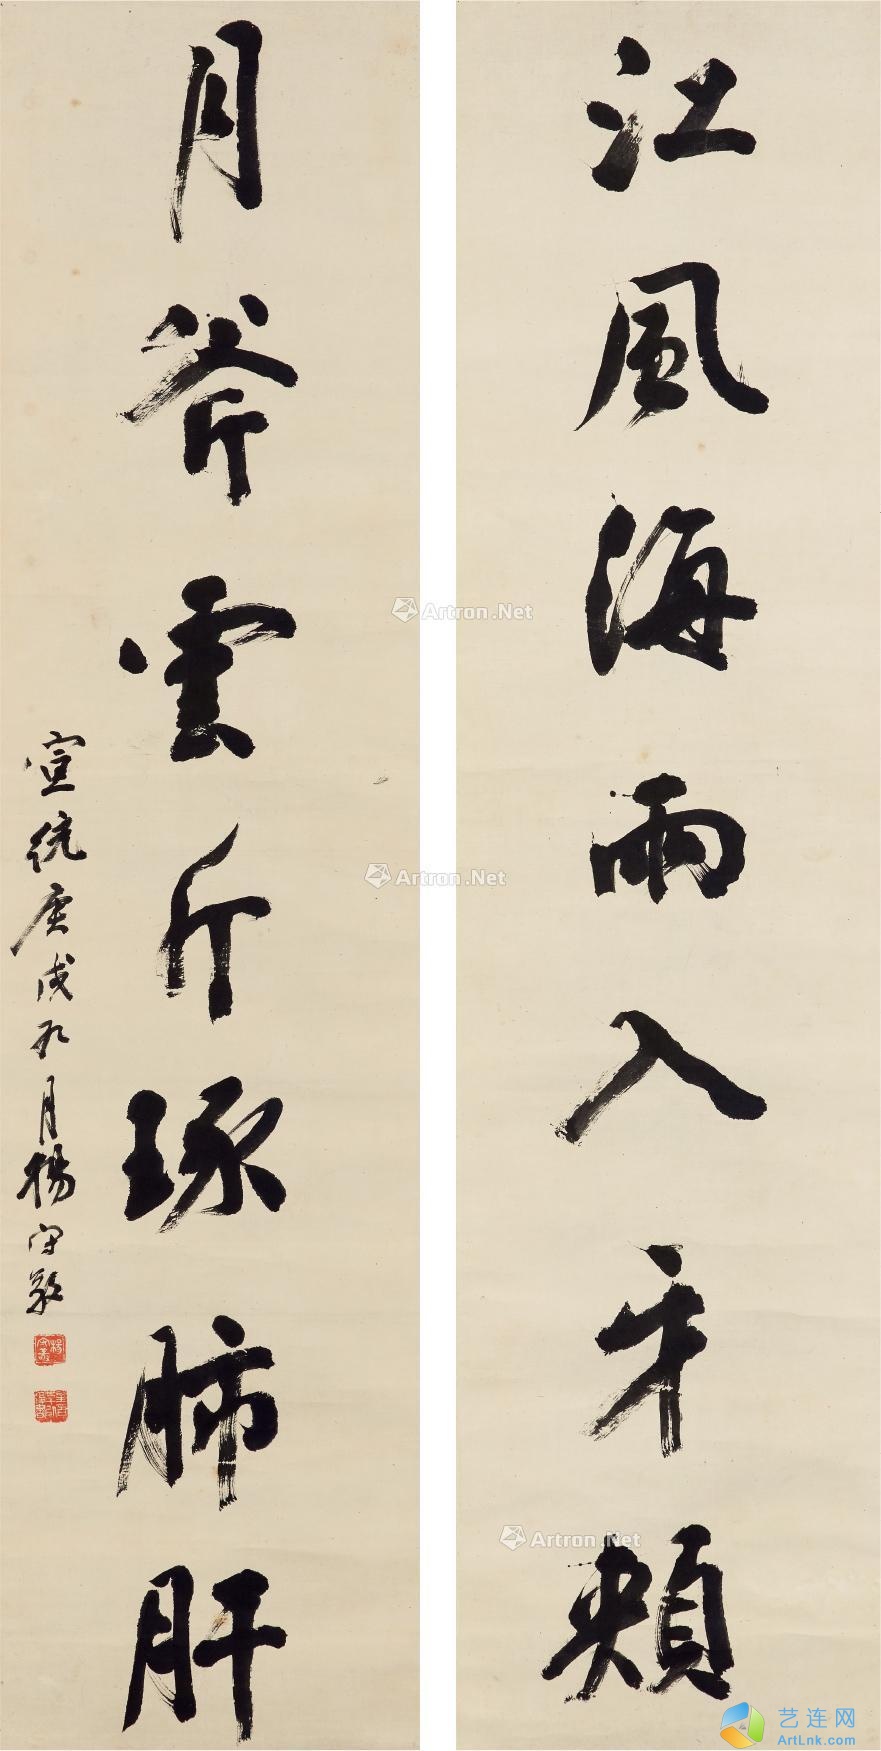 江風海雨入牙頰
月斧雲斤琢肺肝
宣統庚戌九月楊守敬
Artron.Net
Artron.Net
Artron.Net
艺连网
ArtLnk.com